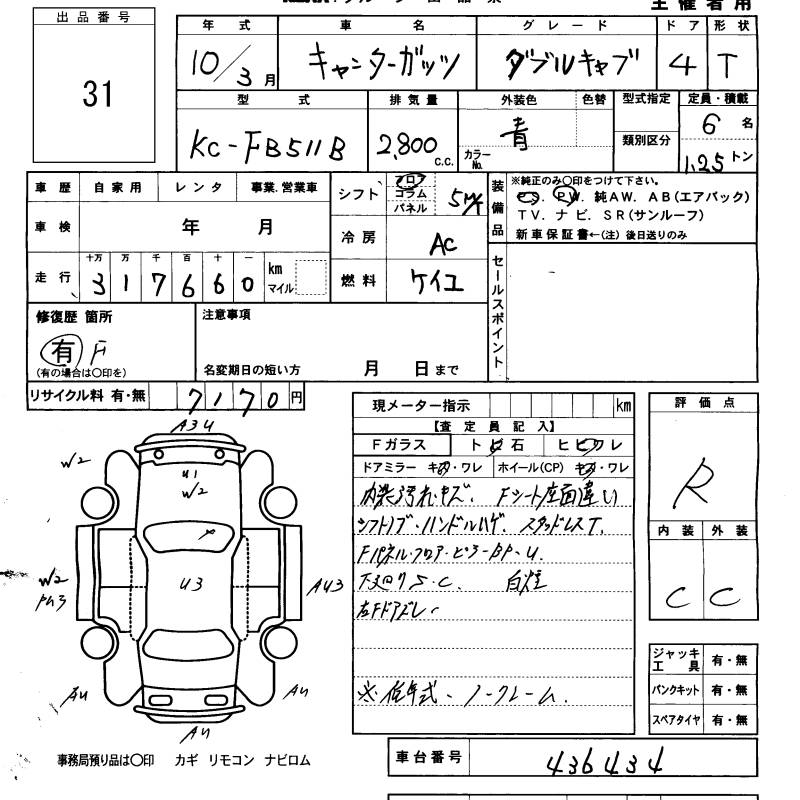 主催者用
出品番号
31
年式 車名 グレード ドア 形状
10/3月 キャンターガッツ ダブルキャブ 4 T
型式 排気量 外装色 色替 型式指定 定員・積載
KC-FB511B 2,800 c.c. 青 カラーNo. 類別区分 6名
1.25トン
車歴 自家用 レンタ 事業.営業車 シフト フロア コラム パネル 5M/T
装備品 ※純正のみ○印をつけて下さい。
PS. PW. 純AW. AB(エアバック)
TV. ナビ. SR(サンルーフ)
新車保証書←(注)後日送りのみ
車検 年 月 冷房 AC
走行 十万 万 千 百 十 一
3 1 7 6 6 0 km マイル 燃料 ケイユ
セールスポイント
修復歴 箇所 注意事項
有 F
(有の場合は○印を) 名変期日の短い方 月 日まで
リサイクル料 有・無 7 1 7 0 円
現メーター指示 km
【査定員記入】
Fガラス トビ石 ヒビワレ
ドアミラー キズ・ワレ ホイール(CP) キズ・ワレ
内装汚れ.キズ. Fシート座面違い
シフトノブ・ハンドルハゲ. スタッドレスT.
Fパネル.フロア.ピラーBP-U.
下廻りS.C.
左Fドアズレ.
※低年式-ノークレーム.
評価点
R
内装 外装
C C
ジャッキ工具 有・無
パンクキット 有・無
スペアタイヤ 有・無
A3U
W2
U1
W2
P
U3
W2
PU3
AU3
AU
AU
AU
事務局預り品は○印 カギ リモコン ナビロム
車台番号 436434